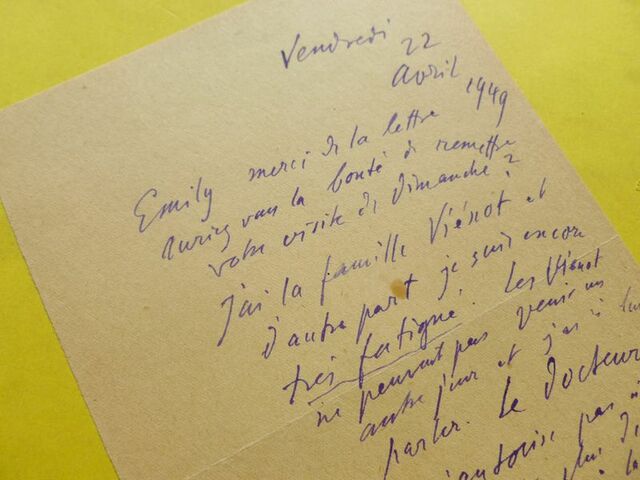 Vendredi 22
avril 1949
Emily merci de la lettre
auriez vous la bonté de remettre
votre visite de dimanche ?
j'ai la famille Viénot et
d'autre part je suis encore
très fatigué. Les Viénot
ne peuvent pas venir un
autre jour et j'ai à
parler. Le docteur
pas